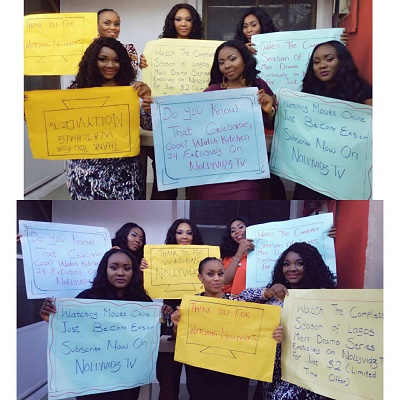 Thank you For
Watching Nollyvidz TV
Watch The Complete
Season of Lagos
Men Drama Series
Exclusively on Nollyvidz TV
For Just $2 (Limited
Watch The Complete
Season of
Men Drama
Exclusively on
Thank you for
watching
Nollyvidz TV
Do you Know
That Celebrities
Cook? Watch Kitchen
24 Exclusively On
Nollyvidz TV
Watching Movies Online
Just Became Easier
Subscribe Now On
Nollyvidz TV
Do you Know
That Celebrities
Cook? Watch Kitchen
24 Exclusively On
Nollyvidz
Thank you For
Watching
Nollyvidz
Watch The Complete
Season of Lagos
Men Drama Series
Exclusively on
Watching Movies Online
Just Became Easier
Subscribe Now On
Nollyvidz TV
Thank you For
Watching Nollyvidz TV
Watch The Complete
Season of Lagos
Men Drama Series
Exclusively on Nollyvidz TV
For Just $2 (Limited
Time Offer)